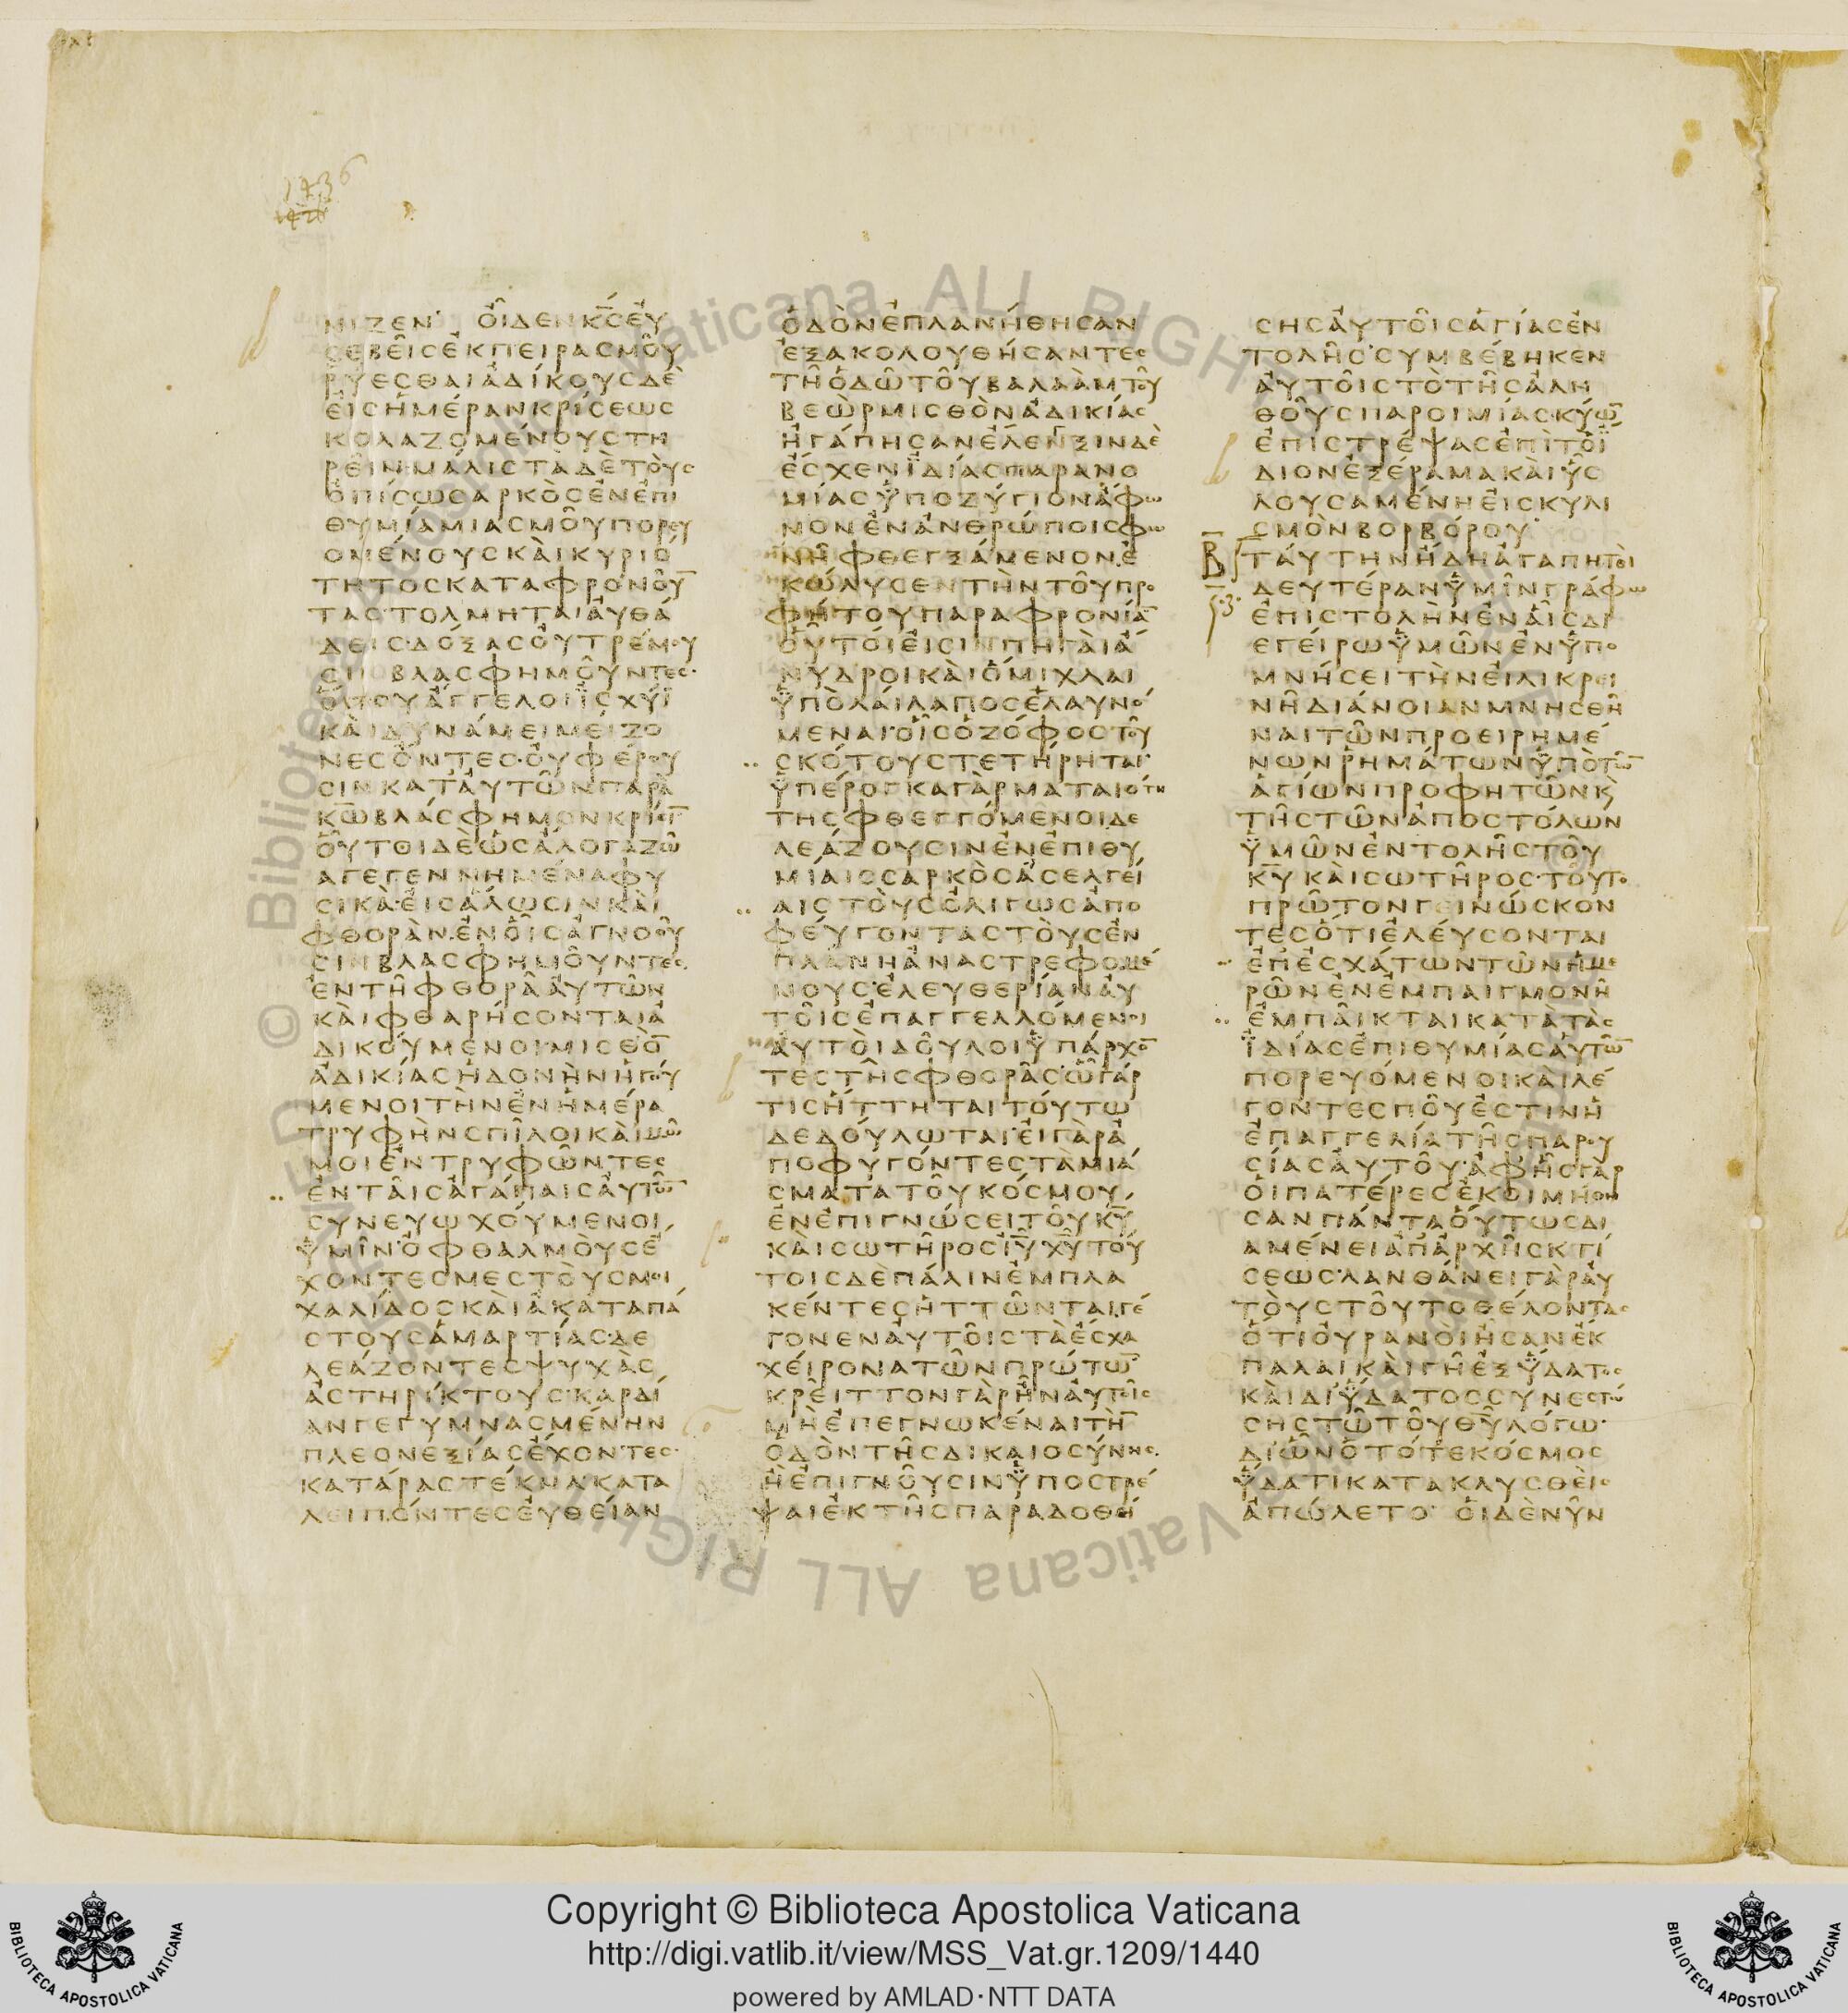 1436
ΜΙΖΕΝ· ΟἾΔΕΝ Κ̅Σ̅ ΕΥ
ΣΕΒΕΙΣ ΕΚ ΠΕΙΡΑΣΜΟΥ
ΡΥΕΣΘΑΙ ΑΔΙΚΟΥΣ ΔΕ
ΕΙΣ ΗΜΕΡΑΝ ΚΡΙΣΕΩΣ
ΚΟΛΑΖΟΜΕΝΟΥΣ ΤΗ
ΡΕΙΝ· ΜΑΛΙΣΤΑ ΔΕ ΤΟΥΣ
ΟΠΙΣΩ ΣΑΡΚΟΣ ΕΝ ΕΠΙ
ΘΥΜΙΑ ΜΙΑΣΜΟΥ ΠΟΡΕΥ
ΟΜΕΝΟΥΣ ΚΑΙ ΚΥΡΙΟ
ΤΗΤΟΣ ΚΑΤΑΦΡΟΝΟΥ̅
ΤΑΣ· ΤΟΛΜΗΤΑΙ ΑΥΘΑ
ΔΕΙΣ· ΔΟΞΑΣ ΟΥ ΤΡΕΜΟΥ
ΣΙΝ ΒΛΑΣΦΗΜΟΥΝΤΕΣ·
ΟΠΟΥ ΑΓΓΕΛΟΙ ΙΣΧΥΙ
ΚΑΙ ΔΥΝΑΜΕΙ ΜΕΙΖΟ
ΝΕΣ ΟΝΤΕΣ· ΟΥ ΦΕΡΟΥ
ΣΙΝ ΚΑΤ ΑΥΤΩΝ ΠΑΡΑ
Κ̅Ω̅ ΒΛΑΣΦΗΜΟΝ ΚΡΙΣΙ̅
ΟΥΤΟΙ ΔΕ ΩΣ ΑΛΟΓΑ ΖΩ
Α ΓΕΓΕΝΝΗΜΕΝΑ ΦΥ
ΣΙΚΑ· ΕΙΣ ΑΛΩΣΙΝ ΚΑΙ
ΦΘΟΡΑΝ· ΕΝ ΟΙΣ ΑΓΝΟΟΥ
ΣΙΝ ΒΛΑΣΦΗΜΟΥΝΤΕΣ·
ΕΝ ΤΗ ΦΘΟΡΑ ΑΥΤΩΝ
ΚΑΙ ΦΘΑΡΗΣΟΝΤΑΙ Α
ΔΙΚΟΥΜΕΝΟΙ ΜΙΣΘΟ̅
ΑΔΙΚΙΑΣ ΗΔΟΝΗΝ ΗΓΟΥ
ΜΕΝΟΙ ΤΗΝ ΕΝ ΗΜΕΡΑ
ΤΡΥΦΗΝ ΣΠΙΛΟΙ ΚΑΙ ΜΩ
ΜΟΙ ΕΝΤΡΥΦΩΝΤΕΣ
ΕΝ ΤΑΙΣ ΑΓΑΠΑΙΣ ΑΥΤΩ̅
ΣΥΝΕΥΩΧΟΥΜΕΝΟΙ
ΥΜΙΝ· ΟΦΘΑΛΜΟΥΣ Ε
ΧΟΝΤΕΣ ΜΕΣΤΟΥΣ ΜΟΙ
ΧΑΛΙΔΟΣ ΚΑΙ ΑΚΑΤΑΠΑ
ΣΤΟΥΣ ΑΜΑΡΤΙΑΣ· ΔΕ
ΛΕΑΖΟΝΤΕΣ ΨΥΧΑΣ
ΑΣΤΗΡΙΚΤΟΥΣ· ΚΑΡΔΙ
ΑΝ ΓΕΓΥΜΝΑΣΜΕΝΗΝ
ΠΛΕΟΝΕΞΙΑΣ ΕΧΟΝΤΕΣ·
ΚΑΤΑΡΑΣ ΤΕΚΝΑ ΚΑΤΑ
ΛΕΙΠΟΝΤΕΣ ΕΥΘΕΙΑΝ
ΟΔΟΝ ΕΠΛΑΝΗΘΗΣΑΝ
ΕΞΑΚΟΛΟΥΘΗΣΑΝΤΕΣ
ΤΗ ΟΔΩ ΤΟΥ ΒΑΛΑΑΜ ΤΟΥ
ΒΕΩΡ ΜΙΣΘΟΝ ΑΔΙΚΙΑΣ
ΗΓΑΠΗΣΑΝ ΕΛΕΓΞΙΝ ΔΕ
ΕΣΧΕΝ ΙΔΙΑΣ ΠΑΡΑΝΟ
ΜΙΑΣ ΥΠΟΖΥΓΙΟΝ ΑΦΩ
ΝΟΝ ΕΝ ΑΝΘΡΩΠΟΙΣ ΦΩ
ΝΗ ΦΘΕΓΞΑΜΕΝΟΝ Ε
ΚΩΛΥΣΕΝ ΤΗΝ ΤΟΥ ΠΡΟ
ΦΗΤΟΥ ΠΑΡΑΦΡΟΝΙΑ̅
ΟΥΤΟΙ ΕΙΣΙΝ ΠΗΓΑΙ Α
ΝΥΔΡΟΙ ΚΑΙ ΟΜΙΧΛΑΙ
ΥΠΟ ΛΑΙΛΑΠΟΣ ΕΛΑΥΝΟ
ΜΕΝΑΙ· ΟΙΣ Ο ΖΟΦΟΣ ΤΟΥ
ΣΚΟΤΟΥΣ ΤΕΤΗΡΗΤΑΙ·
ΥΠΕΡΟΓΚΑ ΓΑΡ ΜΑΤΑΙΟΤΗ
ΤΗΣ ΦΘΕΓΓΟΜΕΝΟΙ ΔΕ
ΛΕΑΖΟΥΣΙΝ ΕΝ ΕΠΙΘΥ
ΜΙΑΙΣ ΣΑΡΚΟΣ ΑΣΕΛΓΕΙ
ΑΙΣ ΤΟΥΣ ΟΛΙΓΩΣ ΑΠΟ
ΦΕΥΓΟΝΤΑΣ ΤΟΥΣ ΕΝ
ΠΛΑΝΗ ΑΝΑΣΤΡΕΦΟΜΕ
ΝΟΥΣ· ΕΛΕΥΘΕΡΙΑΝ ΑΥ
ΤΟΙΣ ΕΠΑΓΓΕΛΛΟΜΕΝΟΙ
ΑΥΤΟΙ ΔΟΥΛΟΙ ΥΠΑΡΧΟ̅
ΤΕΣ ΤΗΣ ΦΘΟΡΑΣ· Ω ΓΑΡ
ΤΙΣ ΗΤΤΗΤΑΙ ΤΟΥΤΩ
ΔΕΔΟΥΛΩΤΑΙ· ΕΙ ΓΑΡ Α
ΠΟΦΥΓΟΝΤΕΣ ΤΑ ΜΙΑ
ΣΜΑΤΑ ΤΟΥ ΚΟΣΜΟΥ
ΕΝ ΕΠΙΓΝΩΣΕΙ ΤΟΥ Κ̅Υ̅
ΚΑΙ ΣΩΤΗΡΟΣ Ι̅Υ̅ Χ̅Υ̅ ΤΟΥ
ΤΟΙΣ ΔΕ ΠΑΛΙΝ ΕΜΠΛΑ
ΚΕΝΤΕΣ ΗΤΤΩΝΤΑΙ, ΓΕ
ΓΟΝΕΝ ΑΥΤΟΙΣ ΤΑ ΕΣΧΑ
ΧΕΙΡΟΝΑ ΤΩΝ ΠΡΩΤΩ̅
ΚΡΕΙΤΤΟΝ ΓΑΡ ΗΝ ΑΥΤΟΙΣ
ΜΗ ΕΠΕΓΝΩΚΕΝΑΙ ΤΗ̅
ΟΔΟΝ ΤΗΣ ΔΙΚΑΙΟΣΥΝΗΣ.
Η ΕΠΙΓΝΟΥΣΙΝ ΥΠΟΣΤΡΕ
ΨΑΙ ΕΚ ΤΗΣ ΠΑΡΑΔΟΘΕΙ
ΣΗΣ ΑΥΤΟΙΣ ΑΓΙΑΣ ΕΝ
ΤΟΛΗΣ· ΣΥΜΒΕΒΗΚΕΝ
ΑΥΤΟΙΣ ΤΟ ΤΗΣ ΑΛΗ
ΘΟΥΣ ΠΑΡΟΙΜΙΑΣ· ΚΥΩ̅
ΕΠΙΣΤΡΕΨΑΣ ΕΠΙ ΤΟ Ι
ΔΙΟΝ ΕΞΕΡΑΜΑ ΚΑΙ ΥΣ
ΛΟΥΣΑΜΕΝΗ ΕΙΣ ΚΥΛΙ
ΣΜΟΝ ΒΟΡΒΟΡΟΥ·
Β ΤΑΥΤΗΝ ΗΔΗ ΑΓΑΠΗΤΟΙ
ΔΕΥΤΕΡΑΝ ΥΜΙΝ ΓΡΑΦΩ
ΕΠΙΣΤΟΛΗΝ ΕΝ ΑΙΣ ΔΙ
ΕΓΕΙΡΩ ΥΜΩΝ ΕΝ ΥΠΟ
ΜΝΗΣΕΙ ΤΗΝ ΕΙΛΙΚΡΙ
ΝΗ ΔΙΑΝΟΙΑΝ ΜΝΗΣΘΗ
ΝΑΙ ΤΩΝ ΠΡΟΕΙΡΗΜΕ
ΝΩΝ ΡΗΜΑΤΩΝ ΥΠΟ ΤΩ̅
ΑΓΙΩΝ ΠΡΟΦΗΤΩΝ Κ
ΤΗΣ ΤΩΝ ΑΠΟΣΤΟΛΩΝ
ΥΜΩΝ ΕΝΤΟΛΗΣ ΤΟΥ
Κ̅Υ̅ ΚΑΙ ΣΩΤΗΡΟΣ· ΤΟΥΤΟ
ΠΡΩΤΟΝ ΓΕΙΝΩΣΚΟΝ
ΤΕΣ ΟΤΙ ΕΛΕΥΣΟΝΤΑΙ
ΕΠ ΕΣΧΑΤΩΝ ΤΩΝ ΗΜΕ
ΡΩΝ ΕΝ ΕΜΠΑΙΓΜΟΝΗ
ΕΜΠΑΙΚΤΑΙ ΚΑΤΑ ΤΑΣ
ΙΔΙΑΣ ΕΠΙΘΥΜΙΑΣ ΑΥΤΩ̅
ΠΟΡΕΥΟΜΕΝΟΙ ΚΑΙ ΛΕ
ΓΟΝΤΕΣ ΠΟΥ ΕΣΤΙΝ Η
ΕΠΑΓΓΕΛΙΑ ΤΗΣ ΠΑΡΟΥ
ΣΙΑΣ ΑΥΤΟΥ· ΑΦ ΗΣ ΓΑΡ
ΟΙ ΠΑΤΕΡΕΣ ΕΚΟΙΜΗΘΗ
ΣΑΝ ΠΑΝΤΑ ΟΥΤΩΣ ΔΙ
ΑΜΕΝΕΙ ΑΠ ΑΡΧΗΣ ΚΤΙ
ΣΕΩΣ· ΛΑΝΘΑΝΕΙ ΓΑΡ ΑΥ
ΤΟΥΣ ΤΟΥΤΟ ΘΕΛΟΝΤΑΣ
ΟΤΙ ΟΥΡΑΝΟΙ ΗΣΑΝ ΕΚ
ΠΑΛΑΙ ΚΑΙ ΓΗ ΕΞ ΥΔΑΤΟΣ
ΚΑΙ ΔΙ ΥΔΑΤΟΣ ΣΥΝΕΣΤΩ
ΣΗΣ ΤΩ ΤΟΥ Θ̅Υ̅ ΛΟΓΩ·
ΔΙ ΩΝ Ο ΤΟΤΕ ΚΟΣΜΟΣ
ΥΔΑΤΙ ΚΑΤΑΚΛΥΣΘΕΙΣ
ΑΠΩΛΕΤΟ· ΟΙ ΔΕ ΝΥΝ
© Biblioteca Apostolica Vaticana ALL RIGHTS RESERVED
Copyright © Biblioteca Apostolica Vaticana
http://digi.vatlib.it/view/MSS_Vat.gr.1209/1440
powered by AMLAD·NTT DATA
BIBLIOTECA APOSTOLICA VATICANA
BIBLIOTECA APOSTOLICA VATICANA